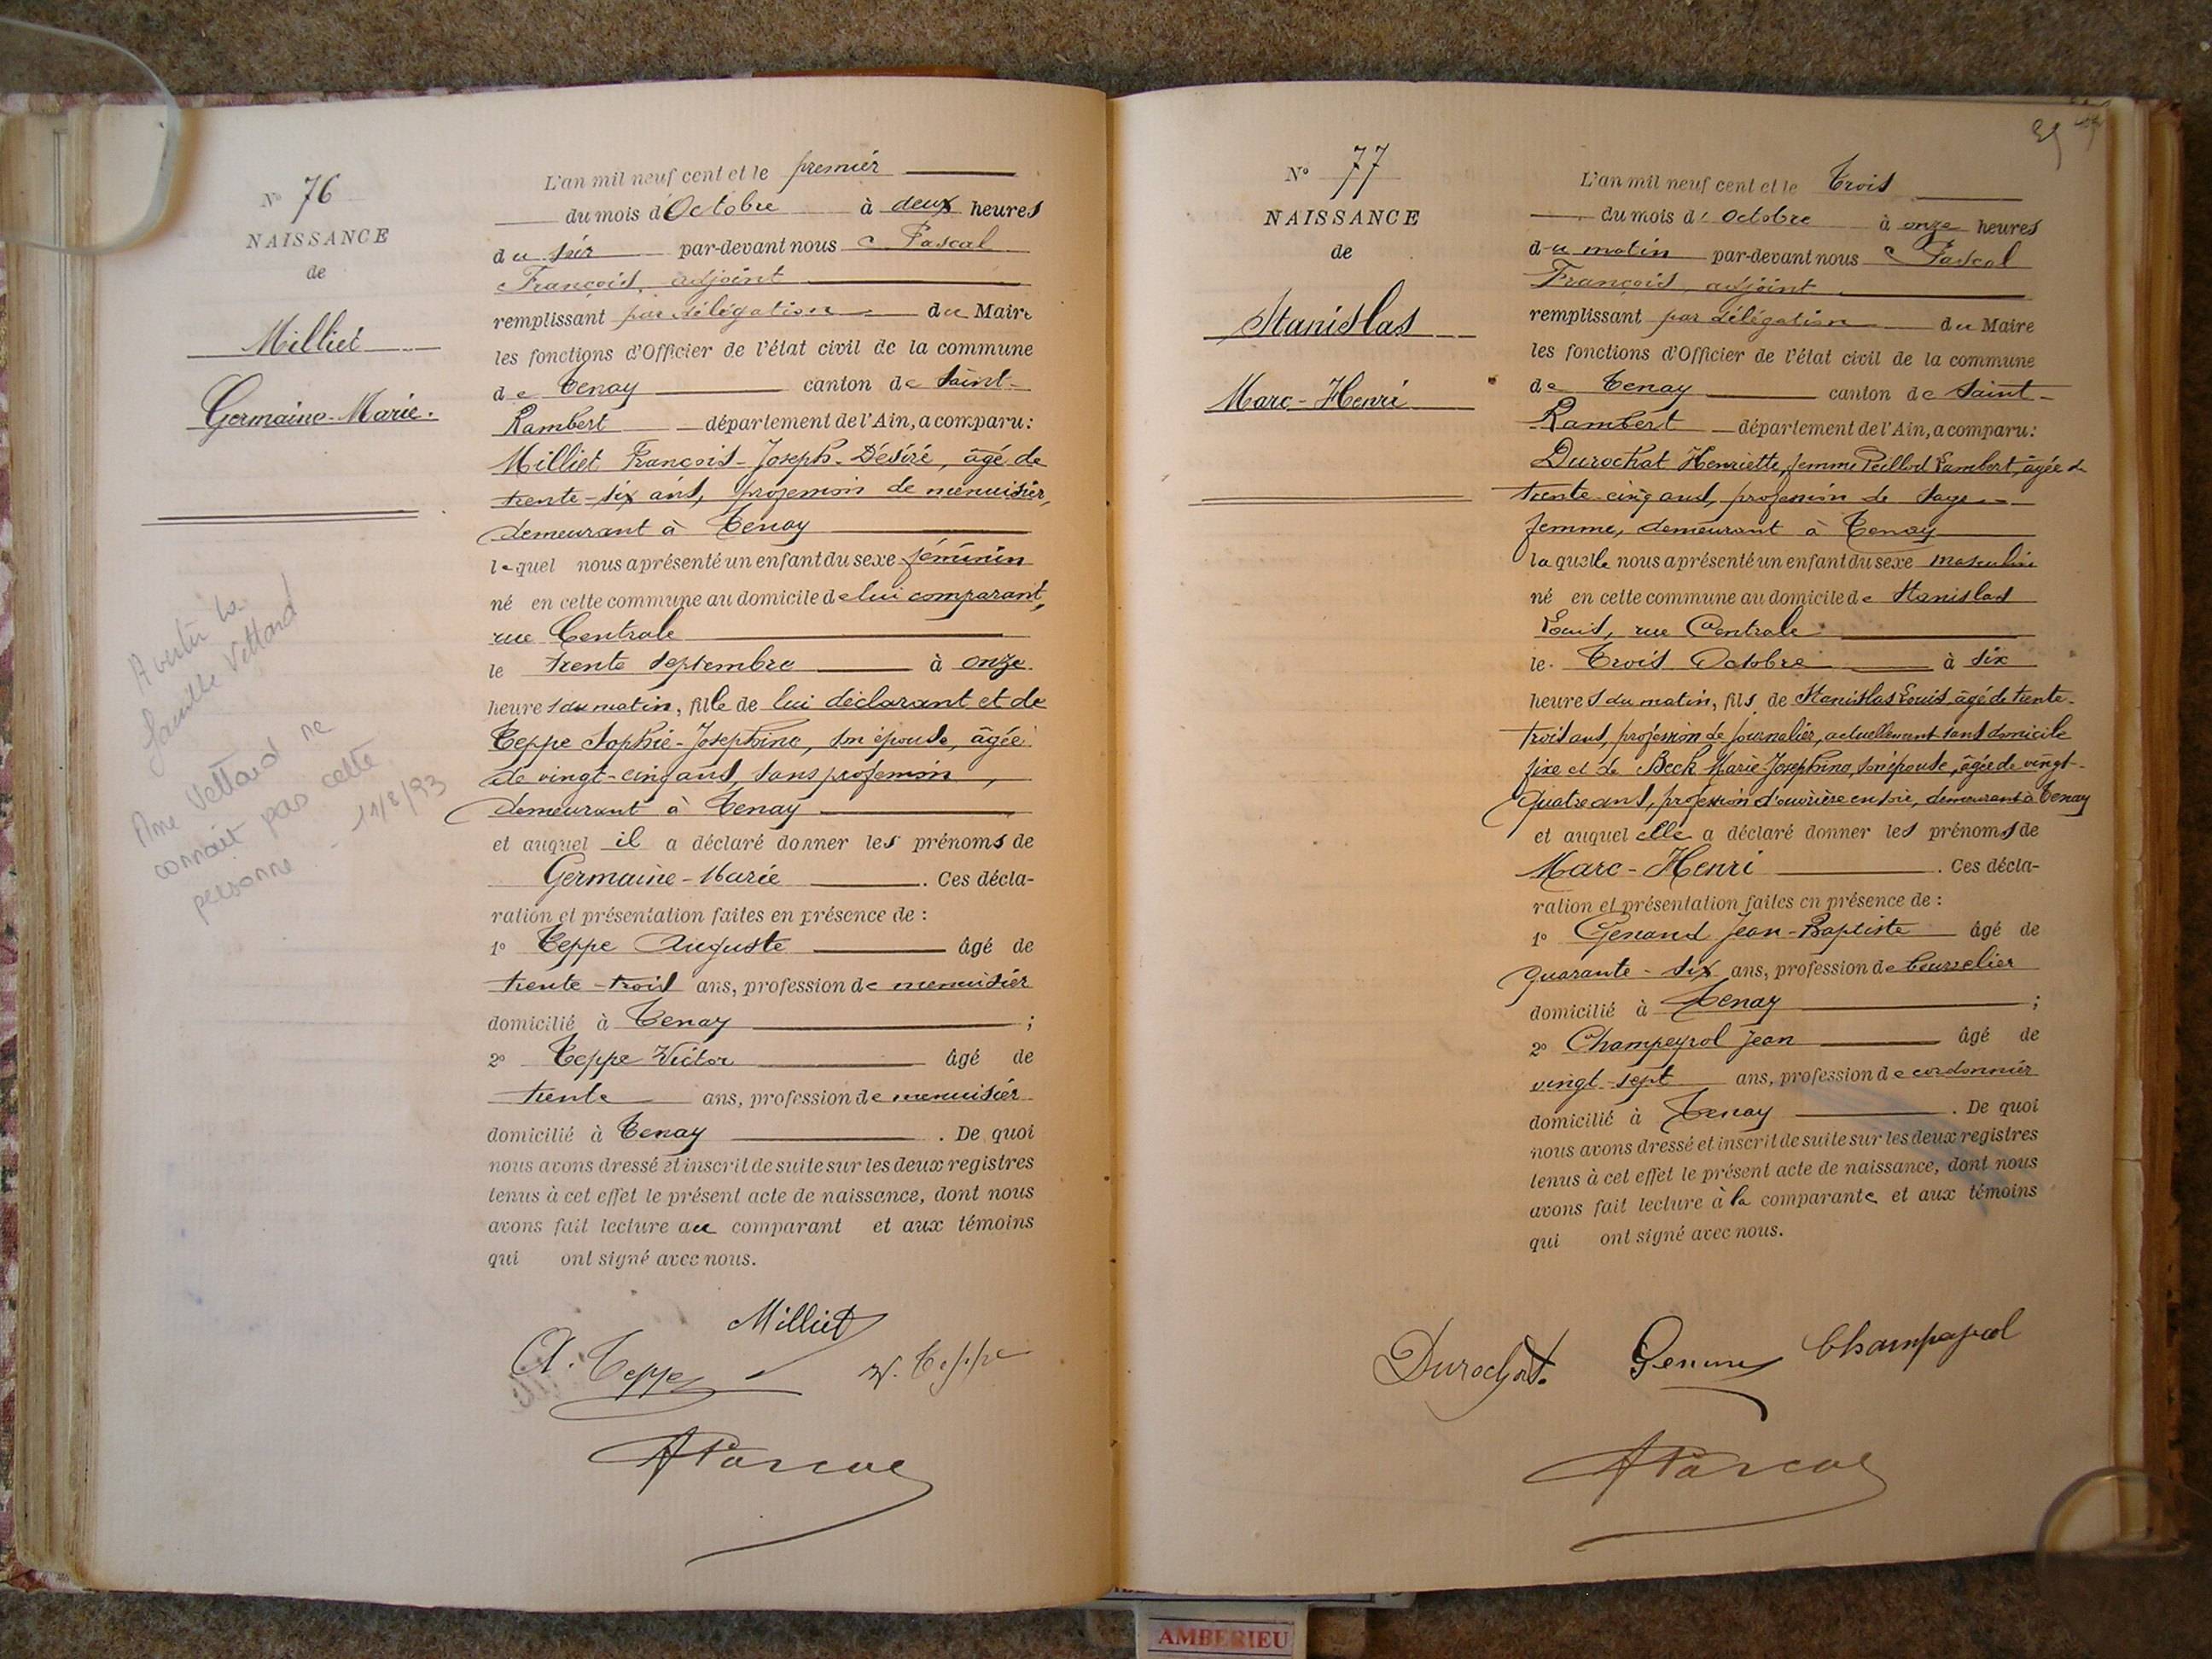 N° 76
NAISSANCE
de
Milliet
Germaine-Marie.
Avertir la
famille Vettard
Mme Vettard ne
connait pas cette
personne - 11/8/93
L'an mil neuf cent et le premier
du mois d'Octobre à deux heures
du soir par-devant nous Pascal
François, adjoint
remplissant par délégation du Maire
les fonctions d'Officier de l'état civil de la commune
de Tenay canton de Saint-
Rambert département de l'Ain, a comparu:
Milliet François-Joseph-Désiré, âgé de
trente-six ans, profession de menuisier,
demeurant à Tenay
lequel nous a présenté un enfant du sexe féminin
né en cette commune au domicile de lui comparant,
rue Centrale
le trente septembre à onze
heures du matin, fille de lui déclarant et de
Teppe Sophie-Josephine, son épouse, âgée
de vingt-cinq ans, sans profession,
demeurant à Tenay
et auquel il a déclaré donner les prénoms de
Germaine-Marie. Ces décla-
ration et présentation faites en présence de :
1° Teppe Auguste âgé de
trente-trois ans, profession de menuisier
domicilié à Tenay ;
2° Teppe Victor âgé de
trente ans, profession de menuisier
domicilié à Tenay . De quoi
nous avons dressé et inscrit de suite sur les deux registres
tenus à cet effet le présent acte de naissance, dont nous
avons fait lecture au comparant et aux témoins
qui ont signé avec nous.
Milliet
A. Teppe V. Teppe
F Pascal
N° 77
NAISSANCE
de
Stanislas
Marc-Henri
39
L'an mil neuf cent et le Trois
du mois d'Octobre à onze heures
du matin par-devant nous Pascal
François, adjoint
remplissant par délégation du Maire
les fonctions d'Officier de l'état civil de la commune
de Tenay canton de Saint-
Rambert département de l'Ain, a comparu:
Durochat Henriette, femme Peillod Lambert, âgée de
trente-cinq ans, profession de sage-
femme, demeurant à Tenay
laquelle nous a présenté un enfant du sexe masculin
né en cette commune au domicile de Stanislas
Louis, rue Centrale
le Trois Octobre à six
heures du matin, fils de Stanislas Louis, âgé de trente-
trois ans, profession de journalier, actuellement sans domicile
fixe et de Beck Marie-Josephine, son épouse, âgée de vingt-
quatre ans, profession d'ouvrière en soie, demeurant à Tenay
et auquel elle a déclaré donner les prénoms de
Marc-Henri . Ces décla-
ration et présentation faites en présence de :
1° Genand Jean-Baptiste âgé de
quarante-six ans, profession de bourrelier
domicilié à Tenay ;
2° Champeyrol Jean âgé de
vingt-sept ans, profession de cordonnier
domicilié à Tenay . De quoi
nous avons dressé et inscrit de suite sur les deux registres
tenus à cet effet le présent acte de naissance, dont nous
avons fait lecture à la comparante et aux témoins
qui ont signé avec nous.
Durochat. Genand Champeyrol
F Pascal
AMBERIEU